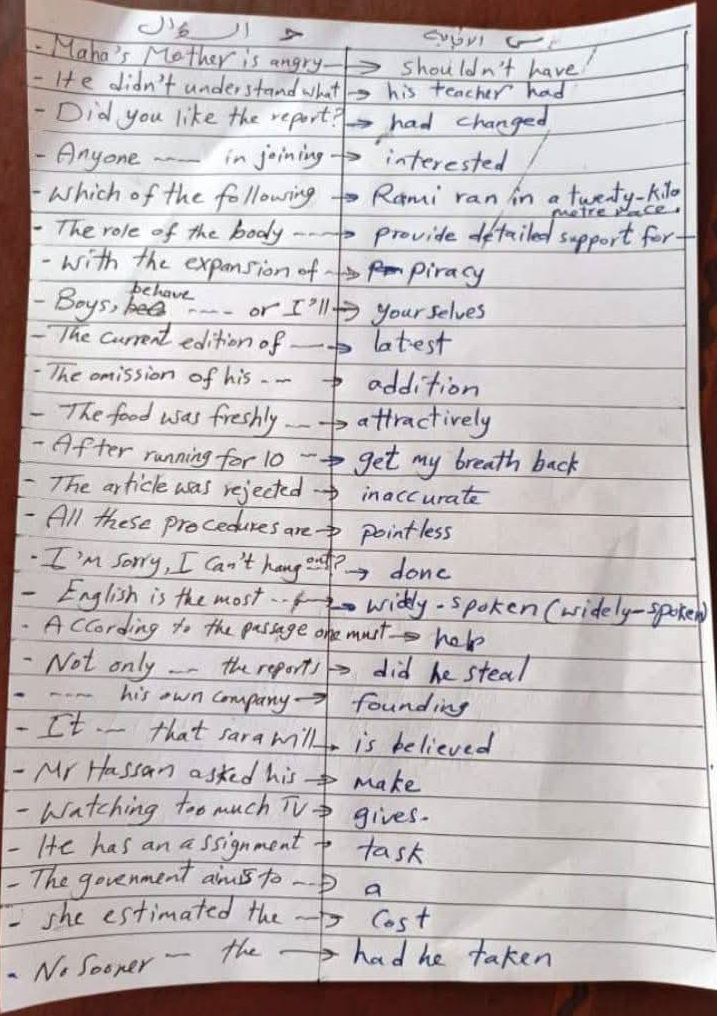 السؤال الاجابة
- Maha's Mother is angry → shouldn't have
- He didn't understand what → his teacher had
- Did you like the report? → had changed
- Anyone ---- in joining → interested
- which of the following → Rami ran in a twenty-kilo
metre race.
- The role of the body ---- → provide detailed support for
- with the expansion of → piracy
- Boys, behave ---- or I'll → yourselves
- The current edition of → latest
- The omission of his -- → addition
- The food was freshly -- → attractively
- After running for 10 -- → get my breath back
- The article was rejected → inaccurate
- All these procedures are → pointless
- I'm sorry, I can't hang out? → done
- English is the most --- → widly-spoken (widely-spoken)
- According to the passage one must → help
- Not only -- the reports → did he steal
- ---- his own company → founding
- It -- that sara will → is believed
- Mr Hassan asked his → make
- Watching too much TV → gives.
- He has an assignment → task
- The govenment aims to --- → a
- she estimated the → cost
- No Sooner -- the → had he taken